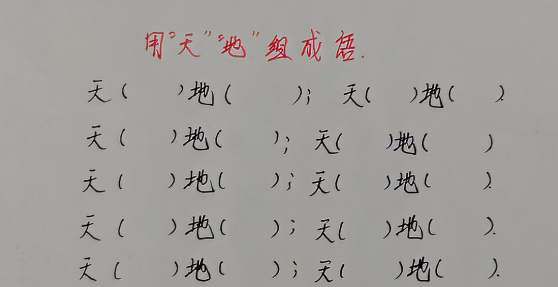 用"天""地"组成语.
天（ ）地（ ）；天（ ）地（ ）.
天（ ）地（ ）；天（ ）地（ ）
天（ ）地（ ）；天（ ）地（ ）.
天（ ）地（ ）；天（ ）地（ ）.
天（ ）地（ ）；天（ ）地（ ）.